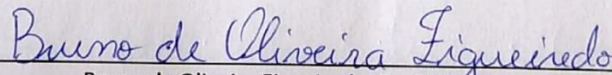 Bruno de Oliveira Figueiredo